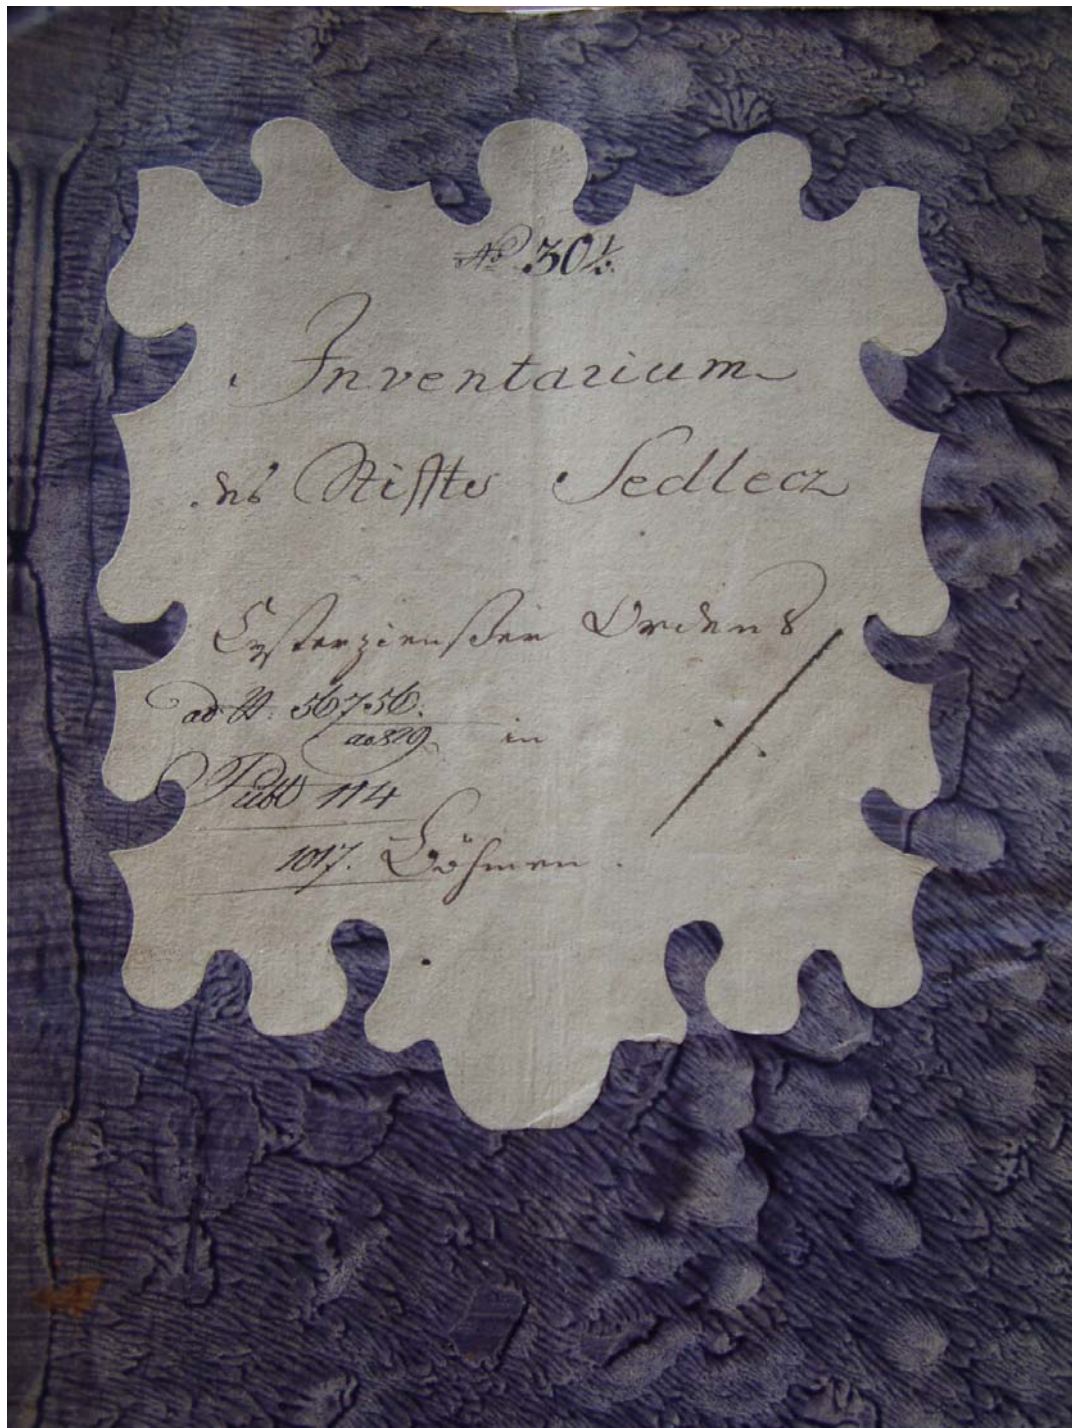 No 30 1/2
Inventarium
des Stiffts Sedlecz
Cysterzienßer Ordens
ad N: 56756.
ao 829. in
Publ 114
1017. Böhmen.